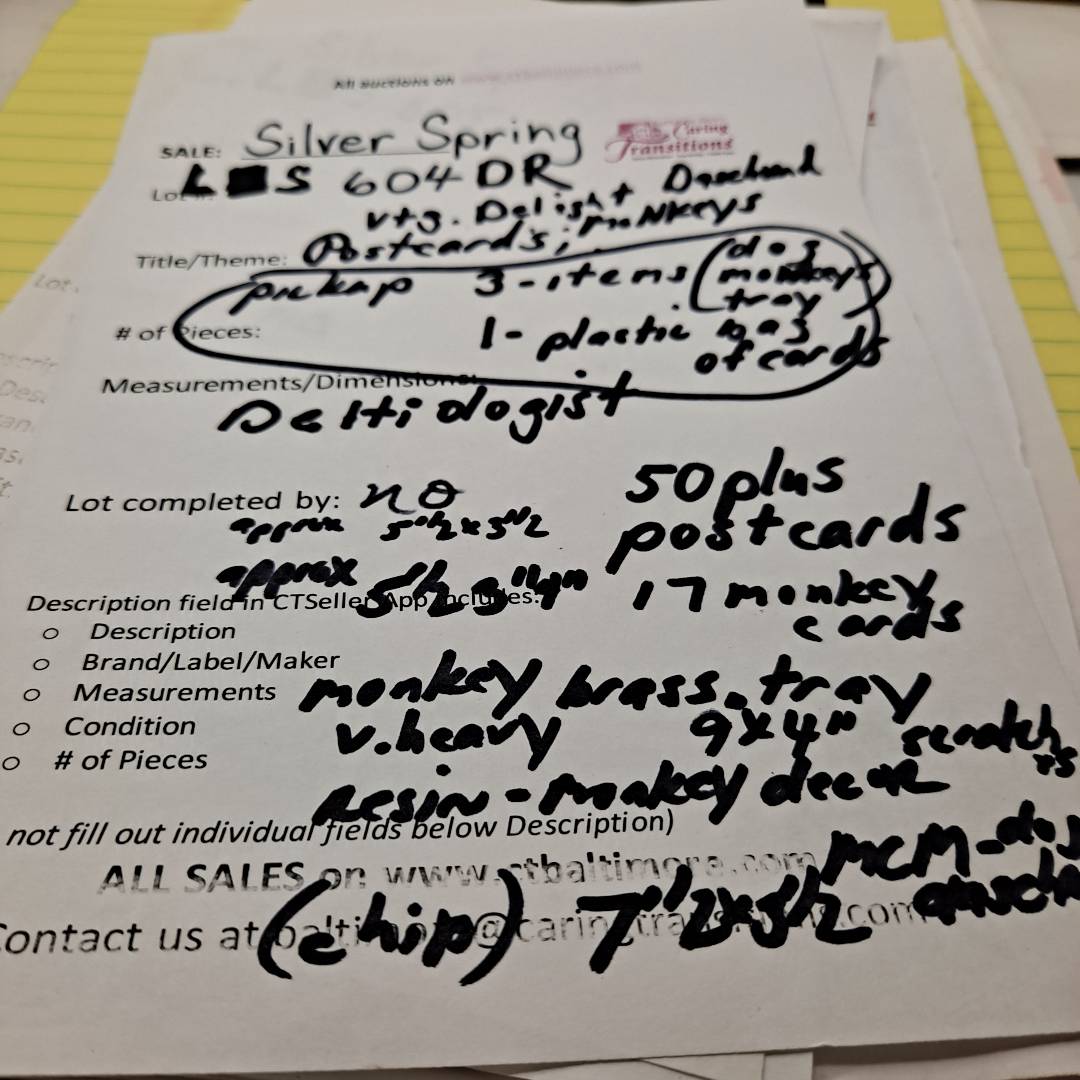 All auctions on
SALE: Silver Spring
Caring Transitions
Lot #: L S 604 DR
vtg. Delight Dasehund
Title/Theme: Postcards; monkeys
pickup 3-items (dog
monkeys)
tray
# of Pieces: 1- plastic bag
of cards
Measurements/Dimensions:
Deltiologist
Lot completed by: no
50 plus
postcards
approx 5"1/2 x 3"1/2
approx
17 monkey
cards
Description field in CTSeller App includes:
o Description
o Brand/Label/Maker
o Measurements
o Condition
o # of Pieces
monkey brass.tray
v.heavy 9x4" scratch
resin - monkey decor
not fill out individual fields below Description)
ALL SALES on www.ctbaltimore.com
mcm-dog
Contact us at baltimore@caringtransitions.com
(chip) 7"1/2x3 1/2